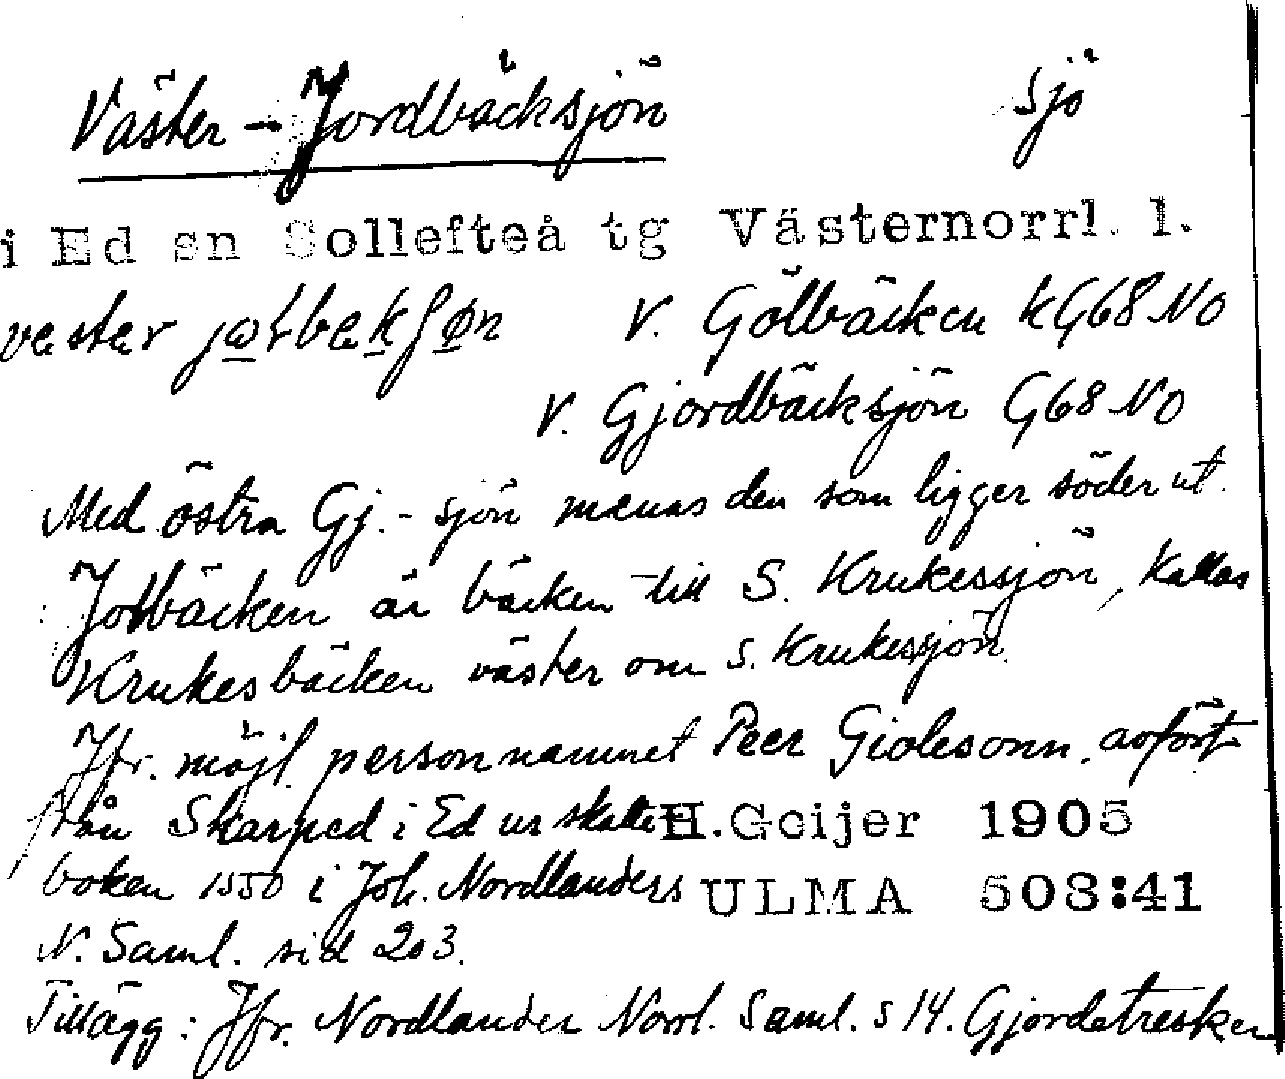 Väster-Jordbäcksjön sjö
i Ed sn Sollefteå tg Västernorrl. l.
V. Gölbäcken kG68NO
V. Gjordbäcksjön G68NO
Med östra Gj.-sjön menas den som ligger söder ut.
Jolbäcken är bäcken till S. Krukessjön, kallas
Krukesbäcken väster om S. Krukessjön.
Jfr. möjl. personnamnet Peer Giolesonn, avfört
från Skarped i Ed ur skatte- H. Geijer 1905
boken 1550 i Joh. Nordlanders ULMA 503:41
N. Saml. sid 203.
Tillägg: Jfr. Nordlander Norrl. Saml. s 14. Gjordetresken